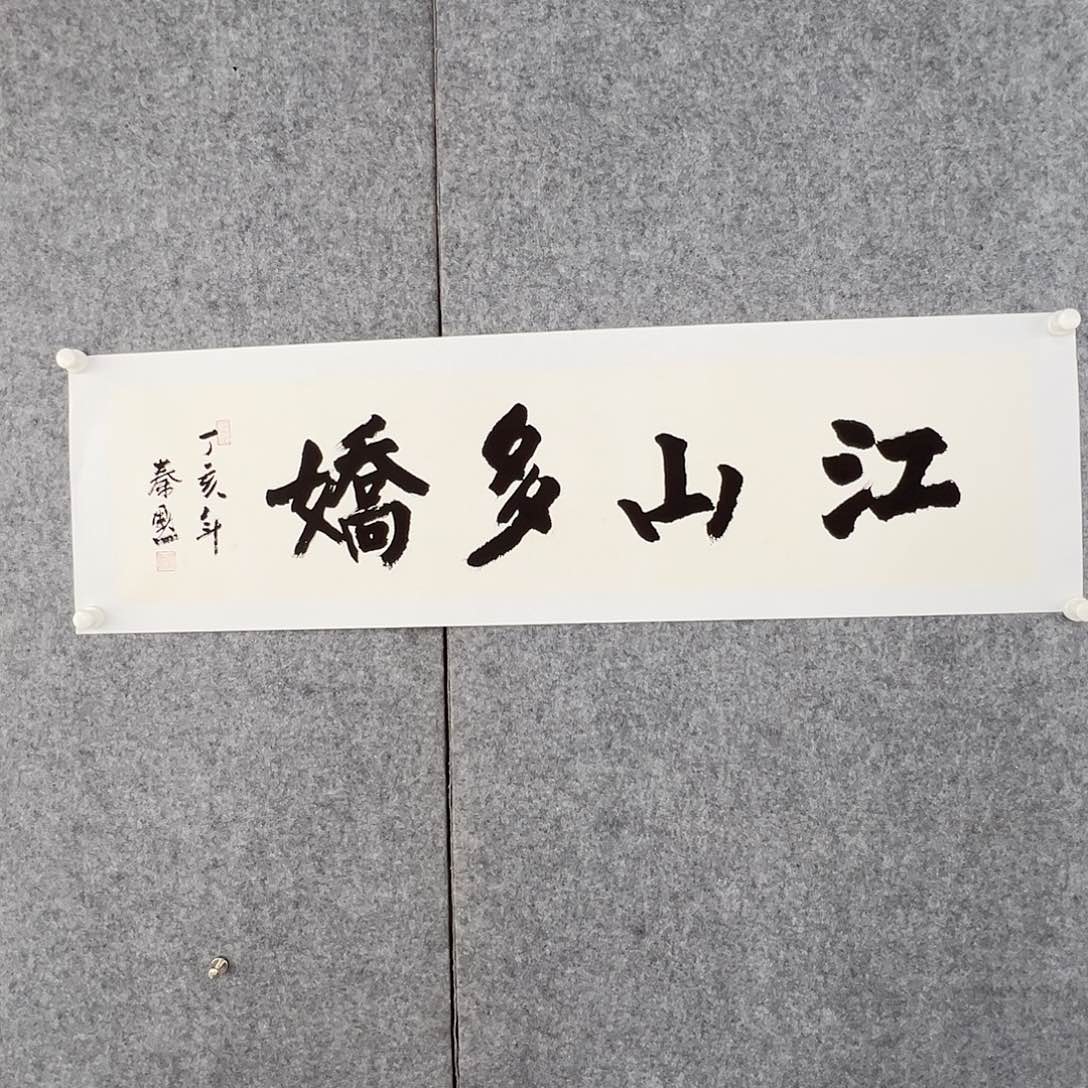 江山多嬌
丁亥年
秦